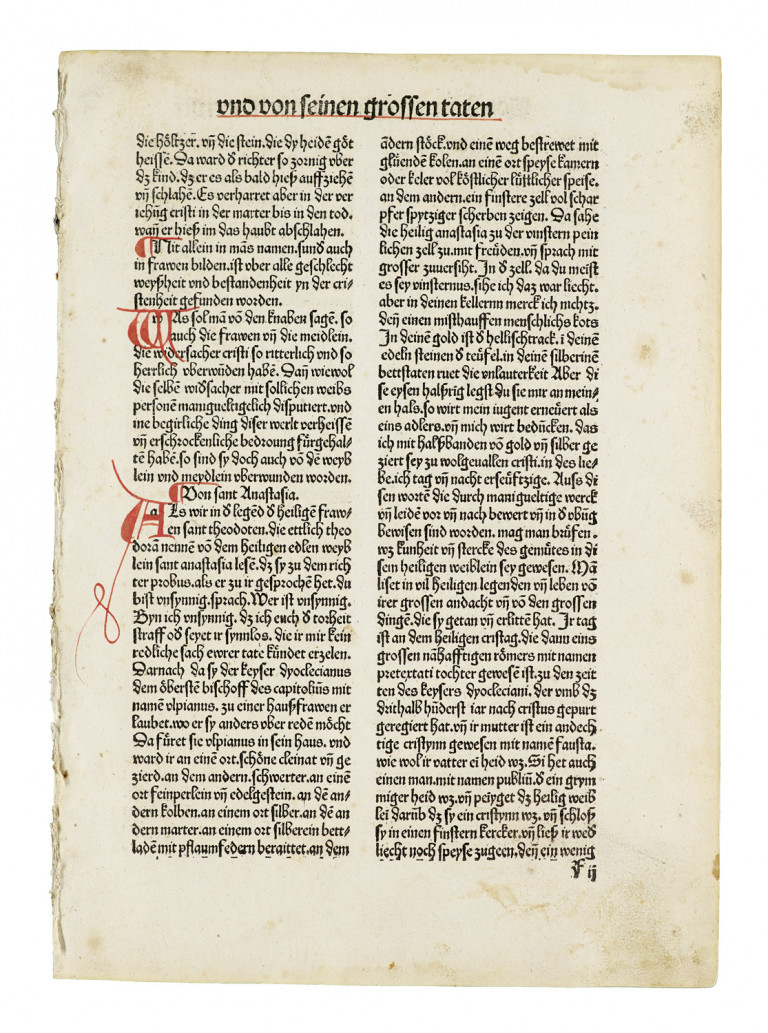 vnd von seinen grossen taten
die höltzer. vñ die stein. die dy heidē göt
heisse. Da ward d̕ richter so zornig vber
dz kind. dz er es als bald hieß auffziehē
vñ schlahē. Es verharret aber in der ver
iehūg cristi in der marter bis in den tod.
wañ er hieß im das haubt abschlahen.
Nit allein in mās namen. sund̕ auch
in frawen bilden. ist vber alle geschlecht
weyßheit vnd bestandenheit yn der cri⸗
stenheit gefunden worden.
w As sol mā vō den knabē sagē. so
auch die frawen vñ die meidlein.
die widersacher cristi so ritterlich vnd so
herrlich vberwūden habē. Dañ wiewol
die selben wid̕sacher mit sollichen weibs
personē manigueltigclich disputiert. vnd
ine begirliche ding diser werlt verheissē
vñ erschrockenliche bedroung fürgehal⸗
tē habē. so sind sy doch auch vō dē weyb
lein vnd meydlein vberwunden worden.
Von sant Anastasia.
a Ls wir in d̕ legēd d̕ heiligē fraw⸗
en sant theodoten. die ettlich theo
dorā nennē vō dem heiligen edlen weyb
lein sant anastasia lesē. dz sy zu dem rich
ter probus. als er zu ir gesprochē het. du
bist vnsynnig. sprach. Wer ist vnsynnig.
Byn ich vnsynnig. dz ich euch d̕ torheit
straff od̕ seyet ir synnlos. die ir mir kein
redliche sach ewrer tate kündet erzelen.
Darnach da sy der keyser dyoclecianus
dem öberstē bischoff des capitolius mit
namē vlpianus. zu einer haußfrawen er
laubet. wo er sy anders vber redē möcht
Da füret sie vlpianus in sein haus. vnd
ward ir an einē ort. schöne cleinat vñ ge
zierd. an dem andern. schwerter. an einē
ort feinperlein vñ edelgestein. an dē an⸗
dern kolben. an einem ort silber. an dē an
dern marter. an einem ort silberein bett⸗
ladē mit pflaumfedern beraittet. an dem
ādern stöck. vnd einē weg bestrewet mit
glüendē kolen. an einē ort speyse kamern
oder keler vol köstlicher lüstlicher speise.
an dem andern. ein finstere zell vol schar
pfer spytziger scherben zeigen. Da sahe
die heilig anastasia zu der vinstern pein
lichen zell zu. mit freüden. vñ sprach mit
grosser zuuersiht. In d̕ zell. da du meist
es sey vinsternus. sihe ich daz war liecht.
aber in deinen kellernn merck ich nichtz.
deñ einen misthauffen menschlichs kots
In deinē gold ist d̕ hellischtrack. ī deinē
edeln steinen d̕ teüfel. in deinē silberinē
bettstaten ruet die vnlauterkeit Aber di
se eysen halßrig legst du sie mir an mein⸗
en hals. so wirt mein iugent erneüert als
eins adlers. vñ mich wirt bedūcken. das
ich mit halßbanden vō gold vñ silber ge
ziert sey zu wolgeuallen cristi. in des lie⸗
be. ich tag vñ nacht erseüfftzige. Auss di
sen wortē die durch manigueltige werck
vñ leidē vor vñ nach bewert vñ in d̕ vbūg
bewisen sind worden. mag man brüfen.
wz kunheit vñ stercke des gemütes in di
sem heiligen weiblein sey gewesen. Mā
liset in vil heiligen legenden vñ leben vō
irer grossen andacht vñ vō den grossen
dingē. die sy getan vñ erlittē hat. Ir tag
ist an dem heiligen cristag. die dann eins
grossen nāhafftigen römers mit namen
pretextati tochter gewesē ist. zu den zeit
ten des keysers dyocleciani. der vmb dz
drithalb hūderst iar nach cristus gepurt
geregiert hat. vñ ir mutter ist ein andech
tige cristynn gewesen mit namē fausta.
wie wol ir vatter ei heid wz. Si het auch
einen man. mit namen publiū. d̕ ein grym
miger heid wz. vñ peyget dz heilig weib
lei darūb dz sy ein cristynn wz. vñ schloß
sy in einen finstern kercker. vñ ließ ir wed̕
liecht noch speyse zugeen. deñ ein wenig
F ij